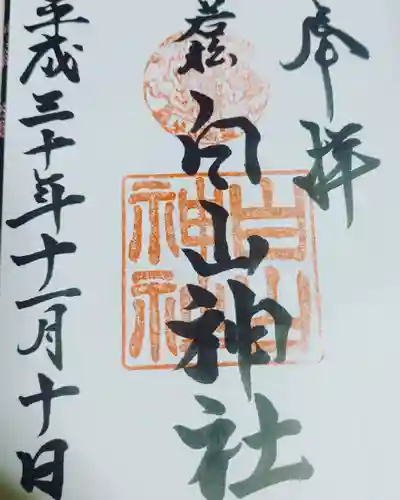 奉拝
若松
白山神社
白山神社
平成三十年十一月十日